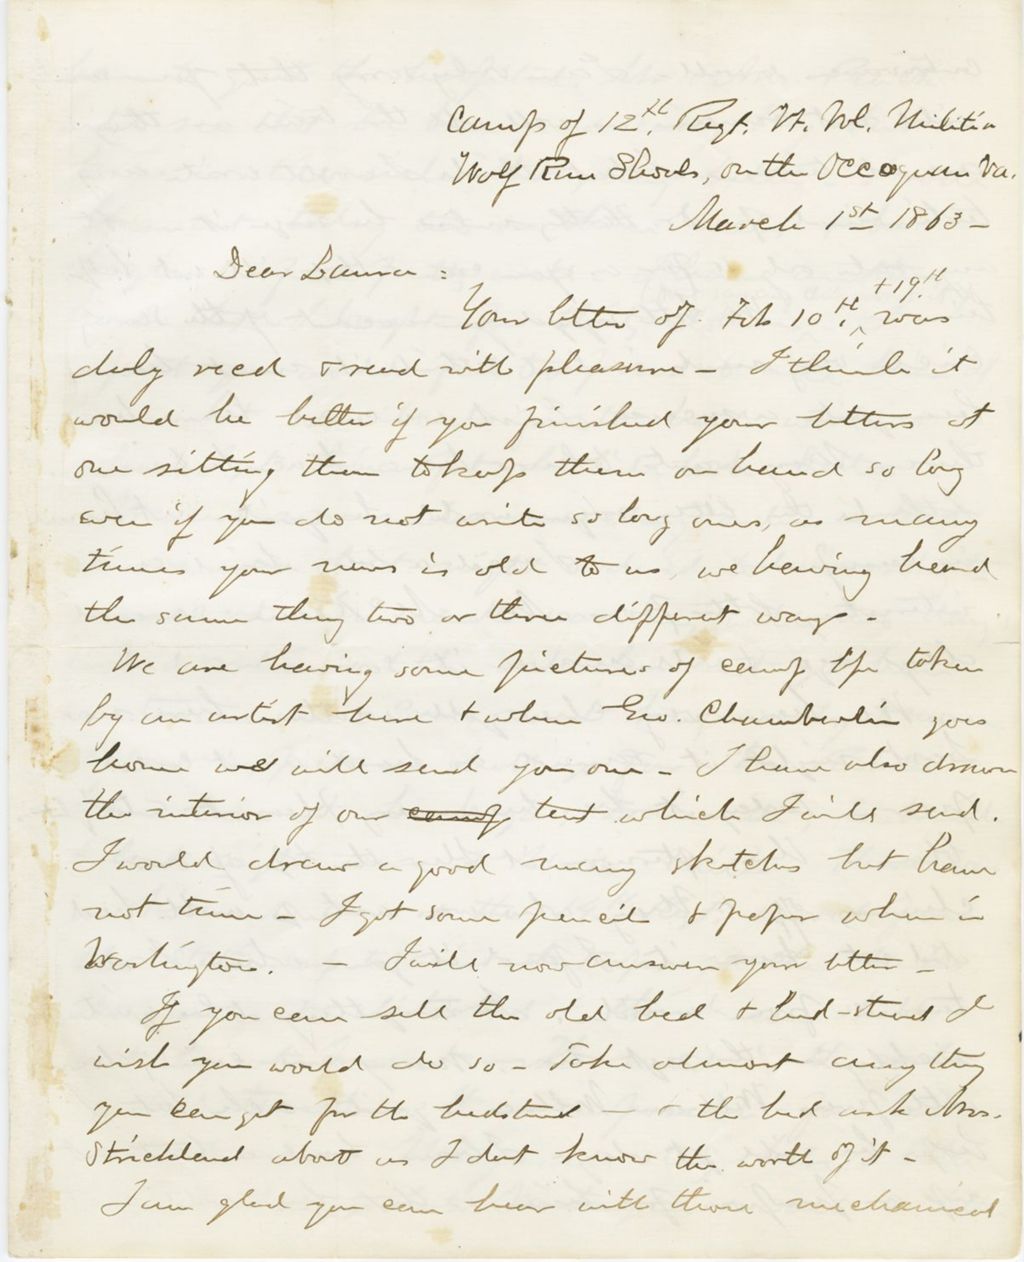 Camp of 12th. Regt. Vt. Vol. Militia
Wolf Run Shoals, on the Occoquan Va.
March 1st 1863 -
Dear Laura :
+ 19th
Your letter of Feb 10th. ^ was
duly recd & read with pleasure - I think it
would be better if you finished your letters at
one sitting then to keep them on hand so long
even if you do not write so long ones, as many
times your news is old to us, we having heard
the same thing two or three different ways -
We are having some pictures of camp life taken
by an artist here & when Geo. Chamberlin goes
home we will send you one - I have also drawn
the interior of our camp tent which I will send.
I would draw a good many sketches but have
not time - I got some pencils & paper when in
Washington. - I will now answer your letter -
If you can sell the old bed & bed-stead I
wish you would do so - Take almost any thing
you can get for the bedstead - & the bed ask Mrs.
Strickland about as I dont know the worth of it -
I am glad you can hear with those mechanical